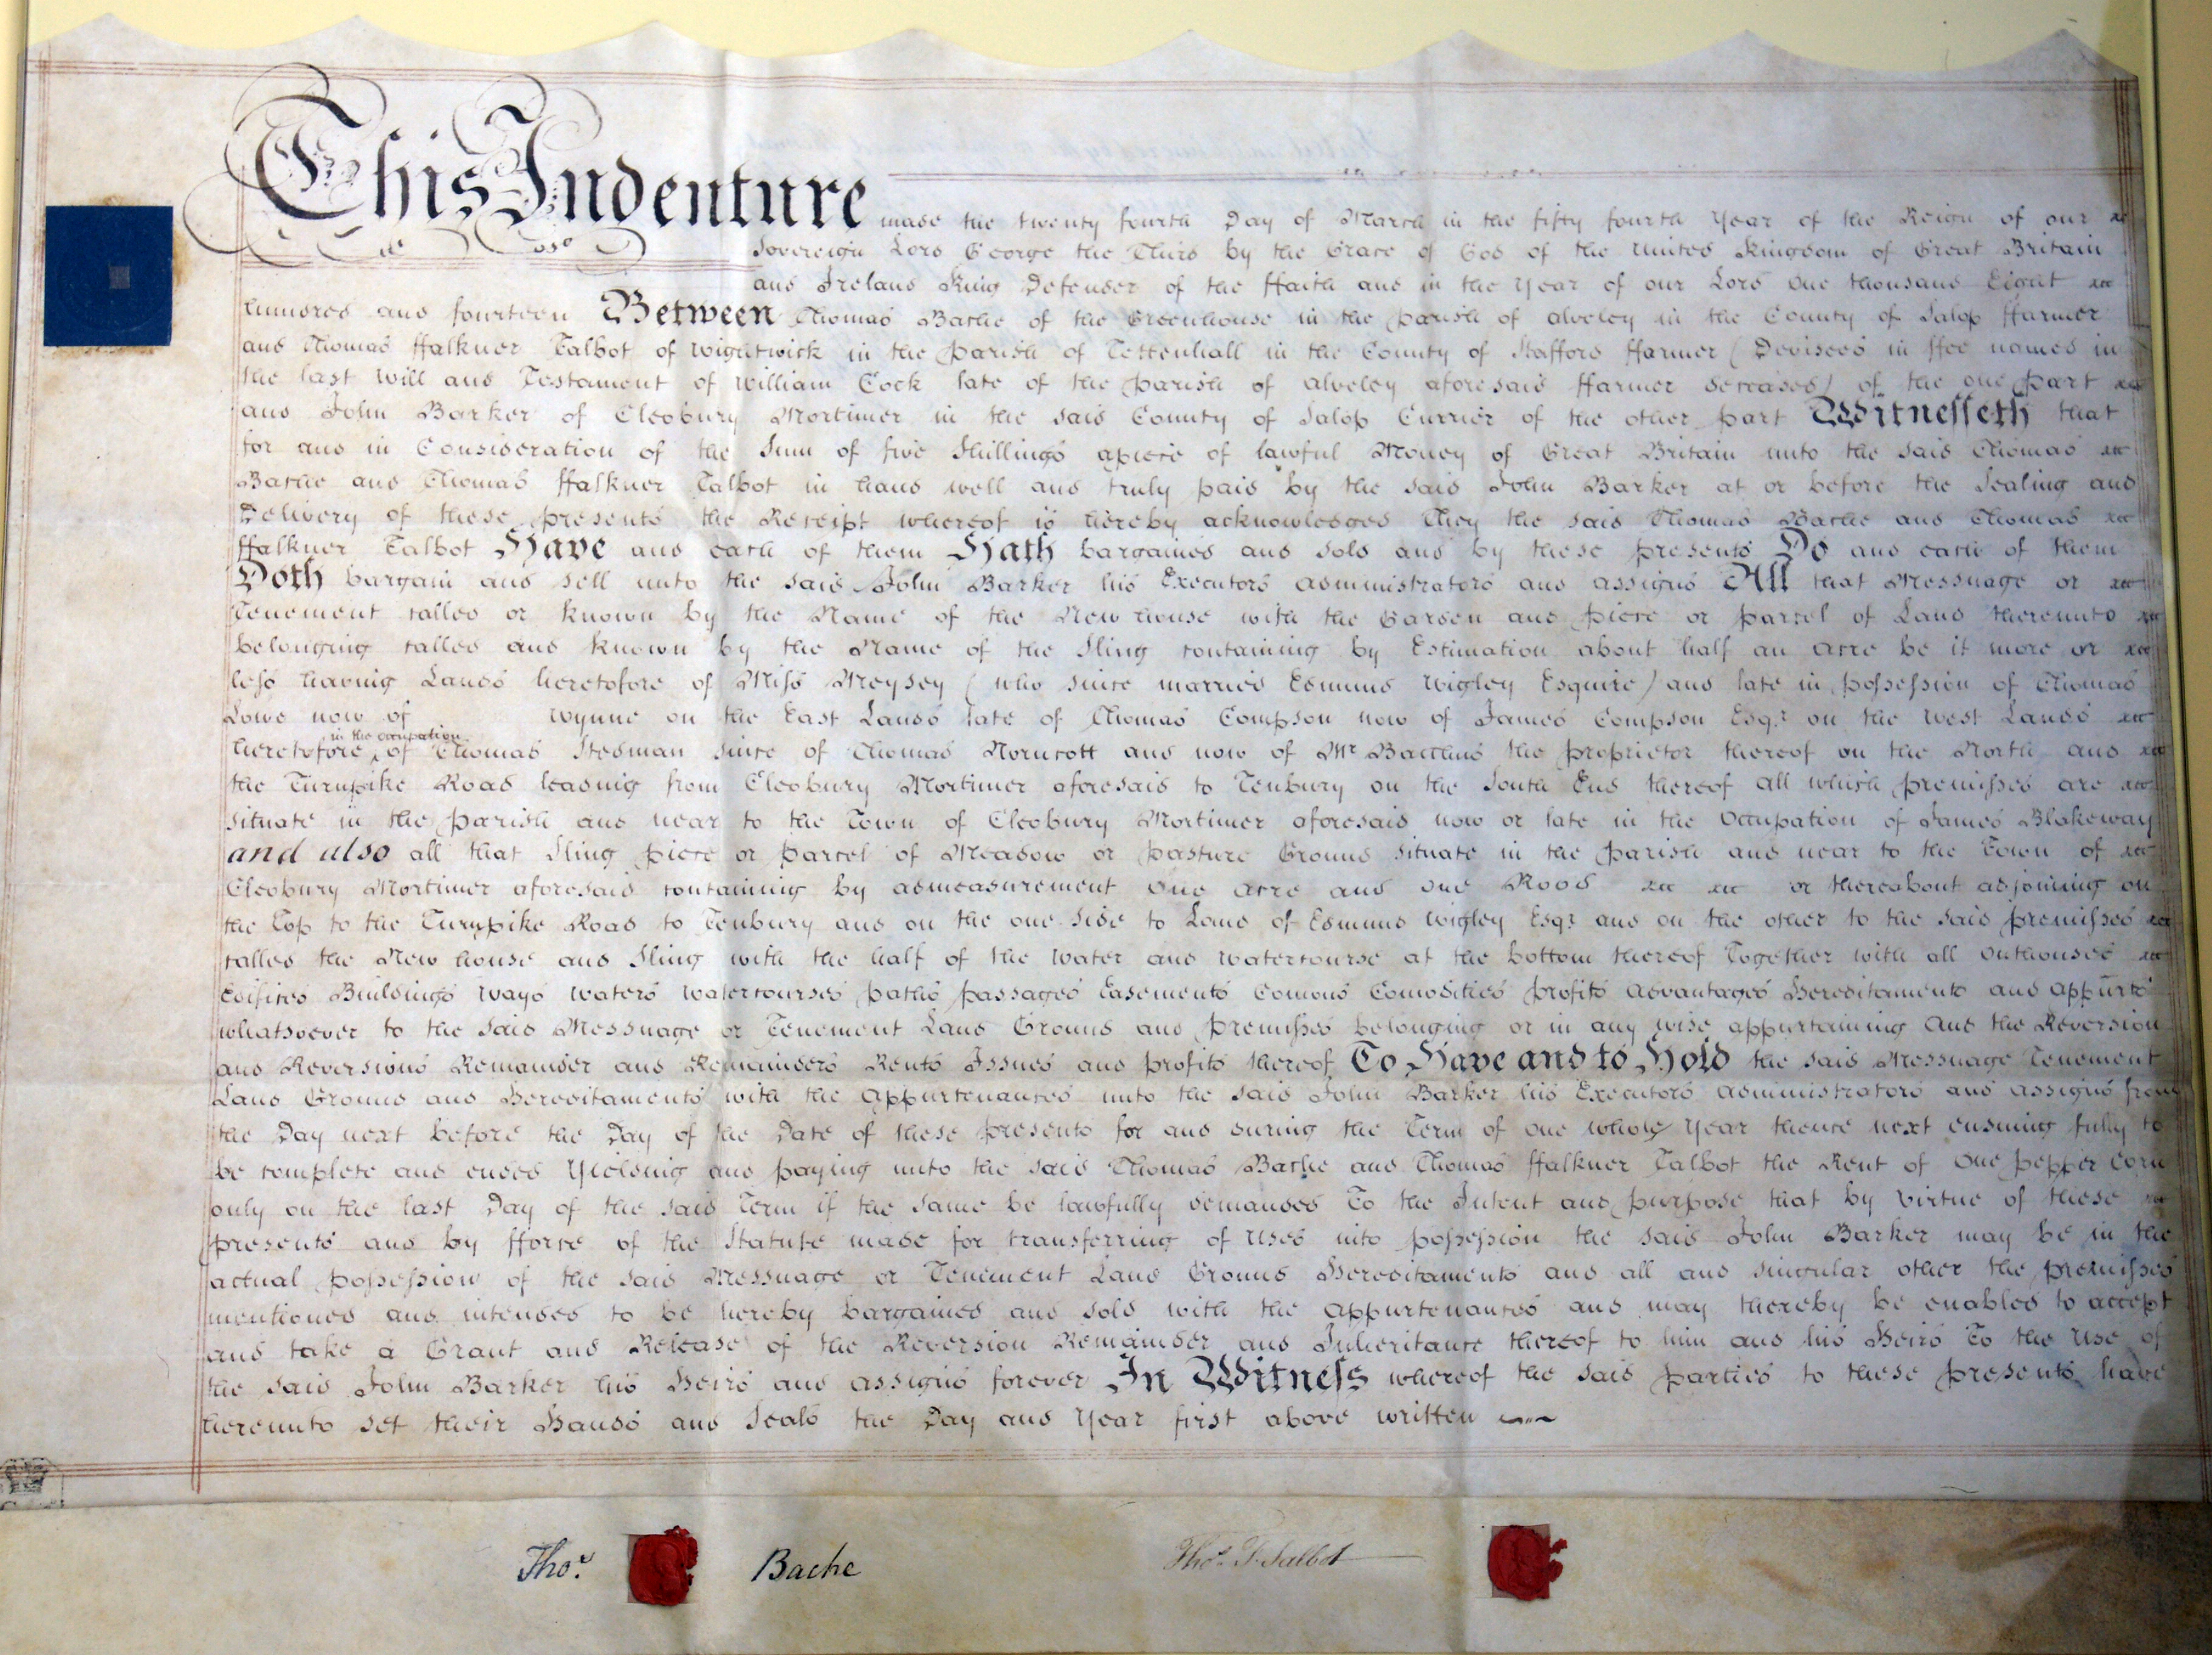 This Indenture made the twenty fourth Day of March in the fifty fourth Year of the Reign of our
Sovereign Lord George the Third by the Grace of God of the United Kingdom of Great Britain
and Ireland King Defender of the ffaith and in the Year of our Lord One thousand Eight
hundred and fourteen Between Thomas Bache of the Greenhouse in the parish of Alveley in the County of Salop ffarmer
and Thomas ffalkner Talbot of Wightwick in the Parish of Tettenhall in the County of Stafford ffarmer (Devisees in ffee named in
the last Will and Testament of William Cock late of the parish of Alveley aforesaid ffarmer deceased) of the one part
and John Barker of Cleobury Mortimer in the said County of Salop Currier of the other part Witnesseth that
for and in Consideration of the Sum of five Shillings apiece of lawful Money of Great Britain unto the said Thomas
Bache and Thomas ffalkner Talbot in hand well and truly paid by the said John Barker at or before the Sealing and
Delivery of these presents the Receipt whereof is hereby acknowledged They the said Thomas Bache and Thomas
ffalkner Talbot Have and each of them Hath bargained and sold and by these presents Do and each of them
Doth bargain and sell unto the said John Barker his Executors Administrators and Assigns All that Messuage or
Tenement called or known by the Name of the New house with the Garden and piece or parcel of Land thereunto
belonging called and known by the Name of the Sling containing by Estimation about half an Acre be it more or
less having Lands heretofore of Miss Meysey (who since married Edmund Wigley Esquire) and late in possession of Thomas
Lowe now of Wynne on the East Lands late of Thomas Compson now of James Compson Esqr. on the West Lands
in the occupation
heretofore of Thomas Stedman since of Thomas Norncott and now of Mr the proprietor thereof on the North and
the Turnpike Road leading from Cleobury Mortimer aforesaid to Tenbury on the South End thereof All which premisses are
situate in the parish and near to the Town of Cleobury Mortimer aforesaid now or late in the Occupation of James Blakeway
and also all that Sling piece or parcel of Meadow or pasture Ground situate in the parish and near to the Town of
Cleobury Mortimer aforesaid containing by admeasurement One Acre and One Rood or thereabout adjoining on
the Top to the Turnpike Road to Tenbury and on the one side to Land of Edmund Wigley Esqr. and on the other to the said premisses
called the New house and Sling with the half of the Water and Watercourse at the bottom thereof Together with all Outhouses
Edifices Buildings Ways Waters Watercourses paths passages Easements Comons Comodities profits Advantages Hereditaments and Appurts
whatsoever to the said Messuage or Tenement Land Ground and premisses belonging or in any wise appurtaining And the Reversion
and Reversions Remainder and Remainders Rents Issues and profits thereof To Have and to Hold the said Messuage Tenement
Land Ground and Hereditaments with the Appurtenances unto the said John Barker his Executors Administrators and Assigns from
the Day next before the Day of the Date of these presents for and during the Term of one whole Year thence next ensuing fully to
be complete and ended Yielding and paying unto the said Thomas Bache and Thomas ffalkner Talbot the Rent of One pepper Corn
only on the last Day of the said Term if the same be lawfully demanded To the Intent and purpose that by virtue of these
presents and by fforce of the Statute made for transferring of Uses into possession the said John Barker may be in the
actual possession of the said Messuage or Tenement Land Ground Hereditaments and all and singular other the premisses
mentioned and intended to be hereby bargained and sold with the Appurtenances and may thereby be enabled to accept
and take a Grant and Release of the Reversion Remainder and Inheritance thereof to him and his Heirs To the Use of
the said John Barker his Heirs and Assigns forever In Witness whereof the said parties to these presents have
hereunto set their Hands and Seals the Day and Year first above written
Thos. Bache
Thos. F. Talbot